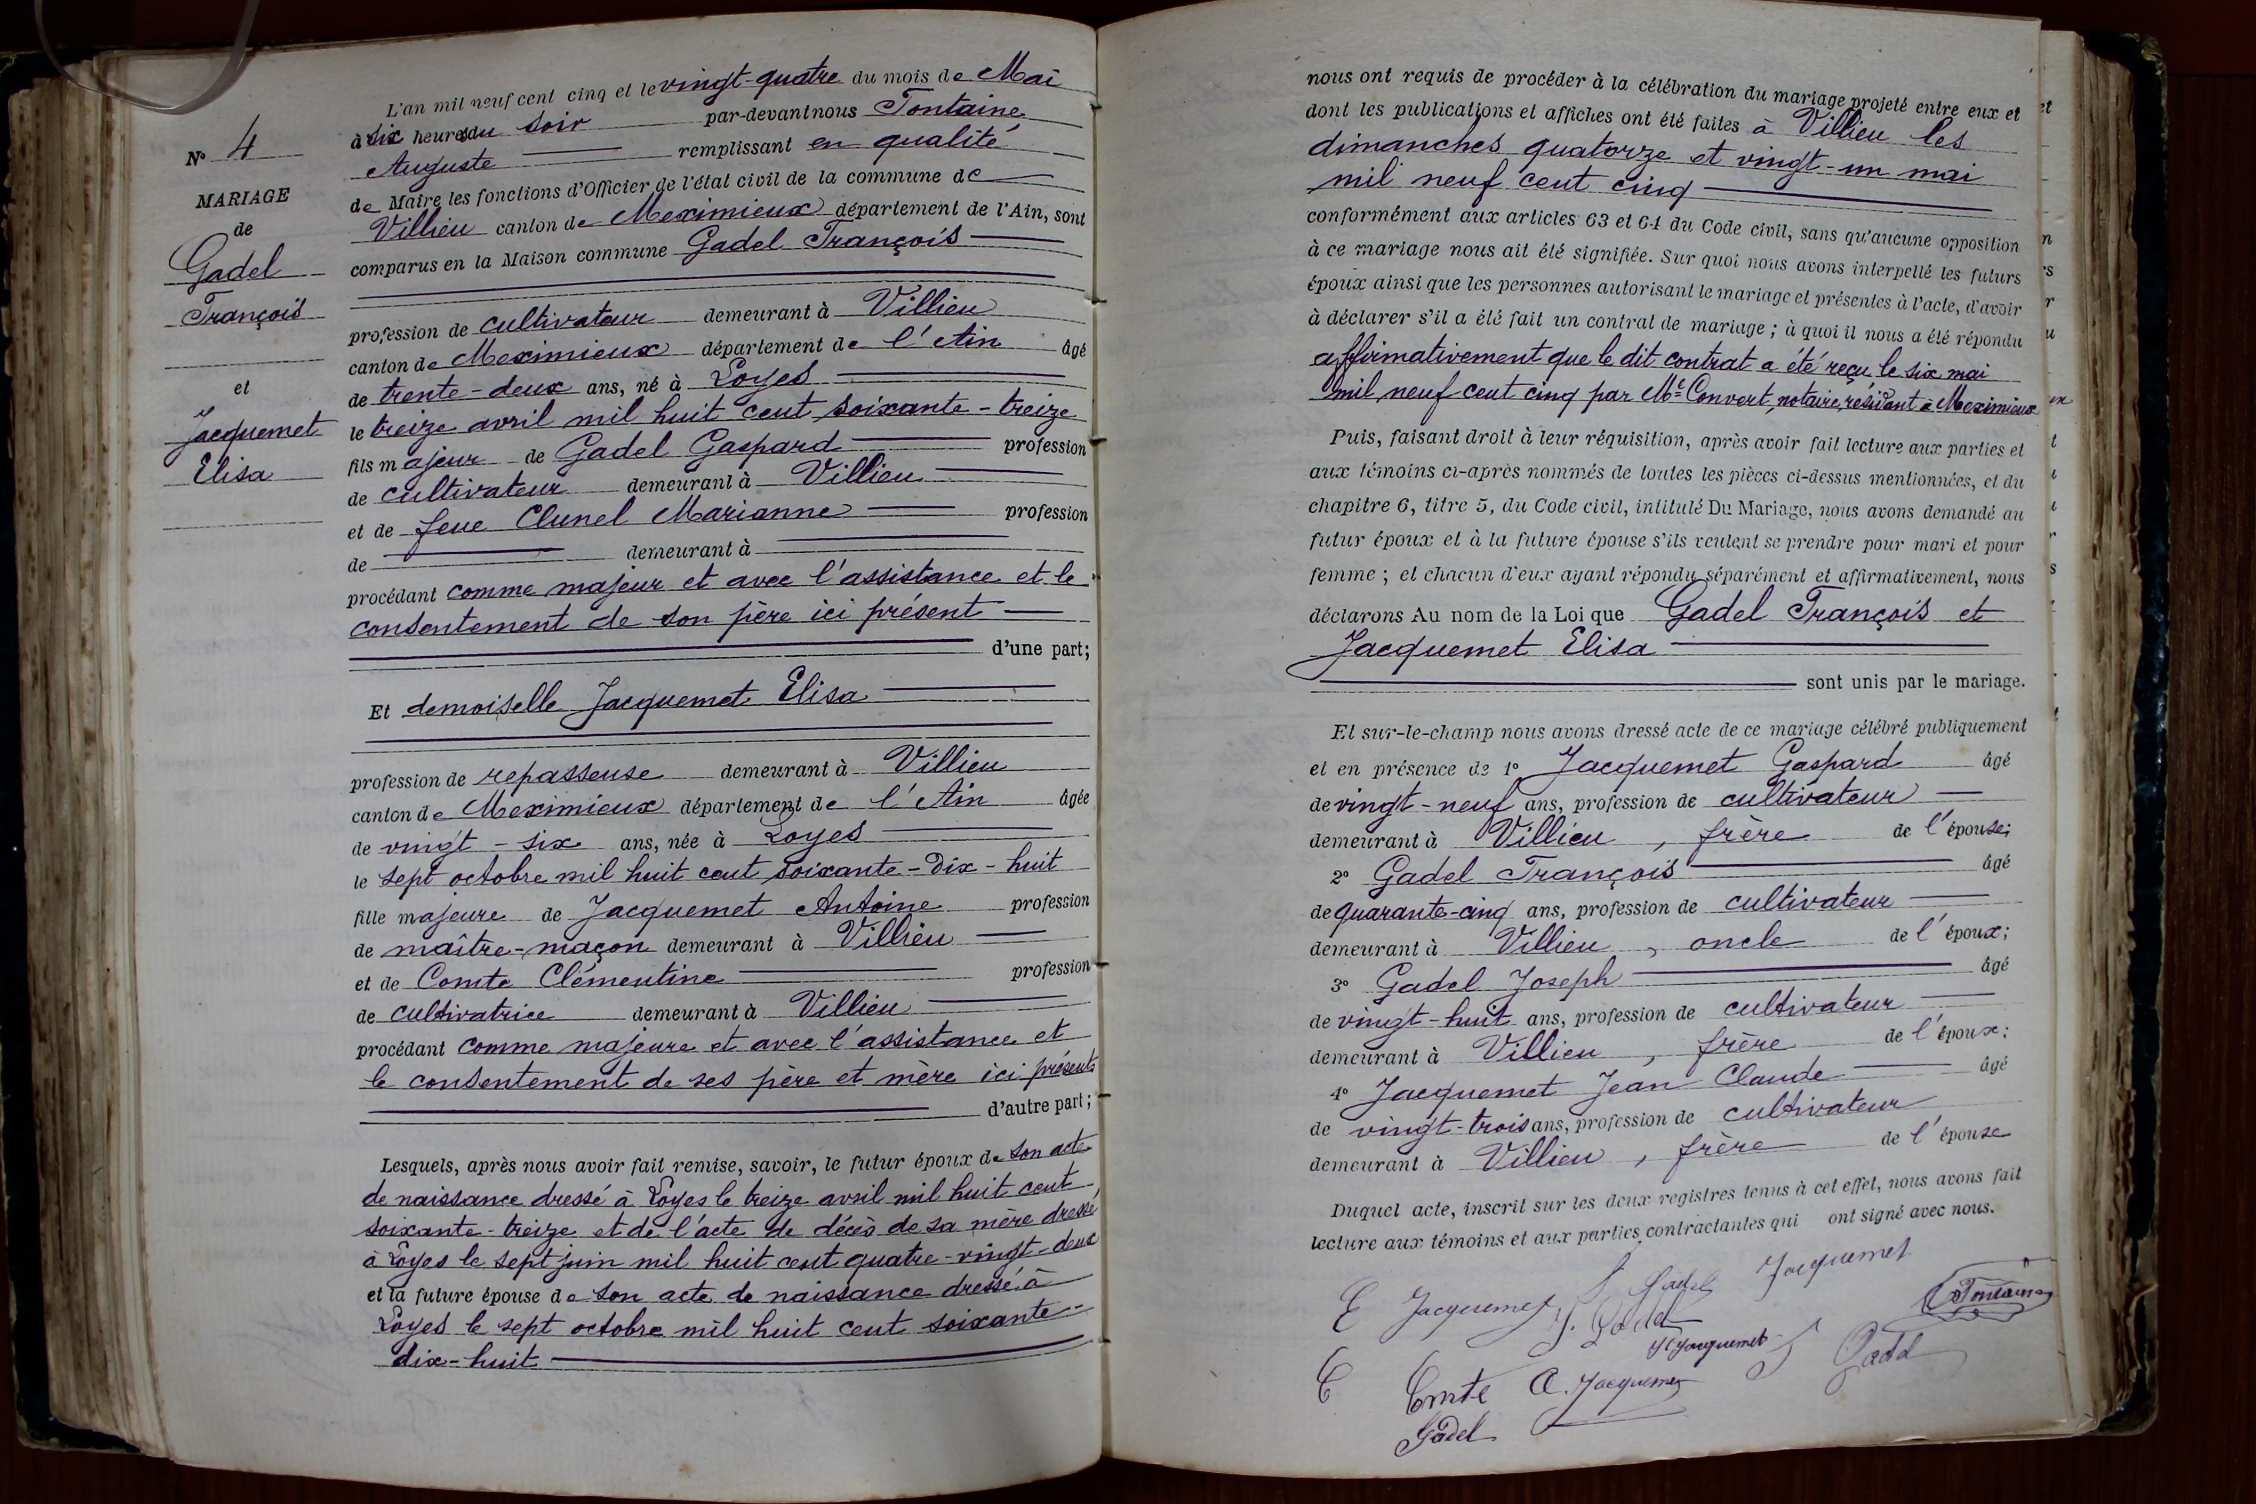 N° 4
MARIAGE
de
Gadel
François
et
Jacquemet
Elisa
L'an mil neuf cent cinq et le vingt-quatre du mois de Mai
à six heures du soir par-devant nous Fontaine
Auguste remplissant en qualité
de Maire les fonctions d'Officier de l'état civil de la commune de
Villieu canton de Meximieux département de l'Ain, sont
comparus en la Maison commune Gadel François
profession de cultivateur demeurant à Villieu
canton de Meximieux département de l'Ain âgé
de trente-deux ans, né à Loyes
le treize avril mil huit cent soixante-treize
fils majeur de Gadel Gaspard profession
de cultivateur demeurant à Villieu
et de feue Clunel Marianne profession
de demeurant à
procédant comme majeur et avec l'assistance et le
consentement de son père ici présent
d'une part;
Et demoiselle Jacquemet Elisa
profession de repasseuse demeurant à Villieu
canton de Meximieux département de l'Ain âgée
de vingt-six ans, née à Loyes
le sept octobre mil huit cent soixante-dix-huit
fille majeure de Jacquemet Antoine profession
de maître-maçon demeurant à Villieu
et de Comte Clémentine profession
de cultivatrice demeurant à Villieu
procédant comme majeure et avec l'assistance et
le consentement de ses père et mère ici présents
d'autre part;
Lesquels, après nous avoir fait remise, savoir, le futur époux de son acte
de naissance dressé à Loyes le treize avril mil huit cent
soixante-treize et de l'acte de décès de sa mère dressé
à Loyes le sept juin mil huit cent quatre-vingt-deux
et la future épouse de son acte de naissance dressé à
Loyes le sept octobre mil huit cent soixante-
dix-huit
nous ont requis de procéder à la célébration du mariage projeté entre eux et
dont les publications et affiches ont été faites à Villieu les
dimanches quatorze et vingt-un mai
mil neuf cent cinq
conformément aux articles 63 et 64 du Code civil, sans qu'aucune opposition
à ce mariage nous ait été signifiée. Sur quoi nous avons interpellé les futurs
époux ainsi que les personnes autorisant le mariage et présentes à l'acte, d'avoir
à déclarer s'il a été fait un contrat de mariage; à quoi il nous a été répondu
affirmativement que le dit contrat a été reçu le six mai
mil neuf cent cinq par Me Convert, notaire, résidant à Meximieux
Puis, faisant droit à leur réquisition, après avoir fait lecture aux parties et
aux témoins ci-après nommés de toutes les pièces ci-dessus mentionnées, et du
chapitre 6, titre 5, du Code civil, intitulé Du Mariage, nous avons demandé au
futur époux et à la future épouse s'ils veulent se prendre pour mari et pour
femme; et chacun d'eux ayant répondu séparément et affirmativement, nous
déclarons Au nom de la Loi que Gadel François et
Jacquemet Elisa
sont unis par le mariage.
Et sur-le-champ nous avons dressé acte de ce mariage célébré publiquement
et en présence de 1° Jacquemet Gaspard âgé
de vingt-neuf ans, profession de cultivateur
demeurant à Villieu, frère de l'épouse;
2° Gadel François âgé
de quarante-cinq ans, profession de cultivateur
demeurant à Villieu, oncle de l'époux;
3° Gadel Joseph âgé
de vingt-huit ans, profession de cultivateur
demeurant à Villieu, frère de l'époux;
4° Jacquemet Jean Claude âgé
de vingt-trois ans, profession de cultivateur
demeurant à Villieu, frère de l'épouse
Duquel acte, inscrit sur les deux registres tenus à cet effet, nous avons fait
lecture aux témoins et aux parties contractantes qui ont signé avec nous.
E Jacquemet Gadel Jacquemet
J. Gadel Fontaine
Jacquemet Gadel
C Comte A. Jacquemet
Gadel